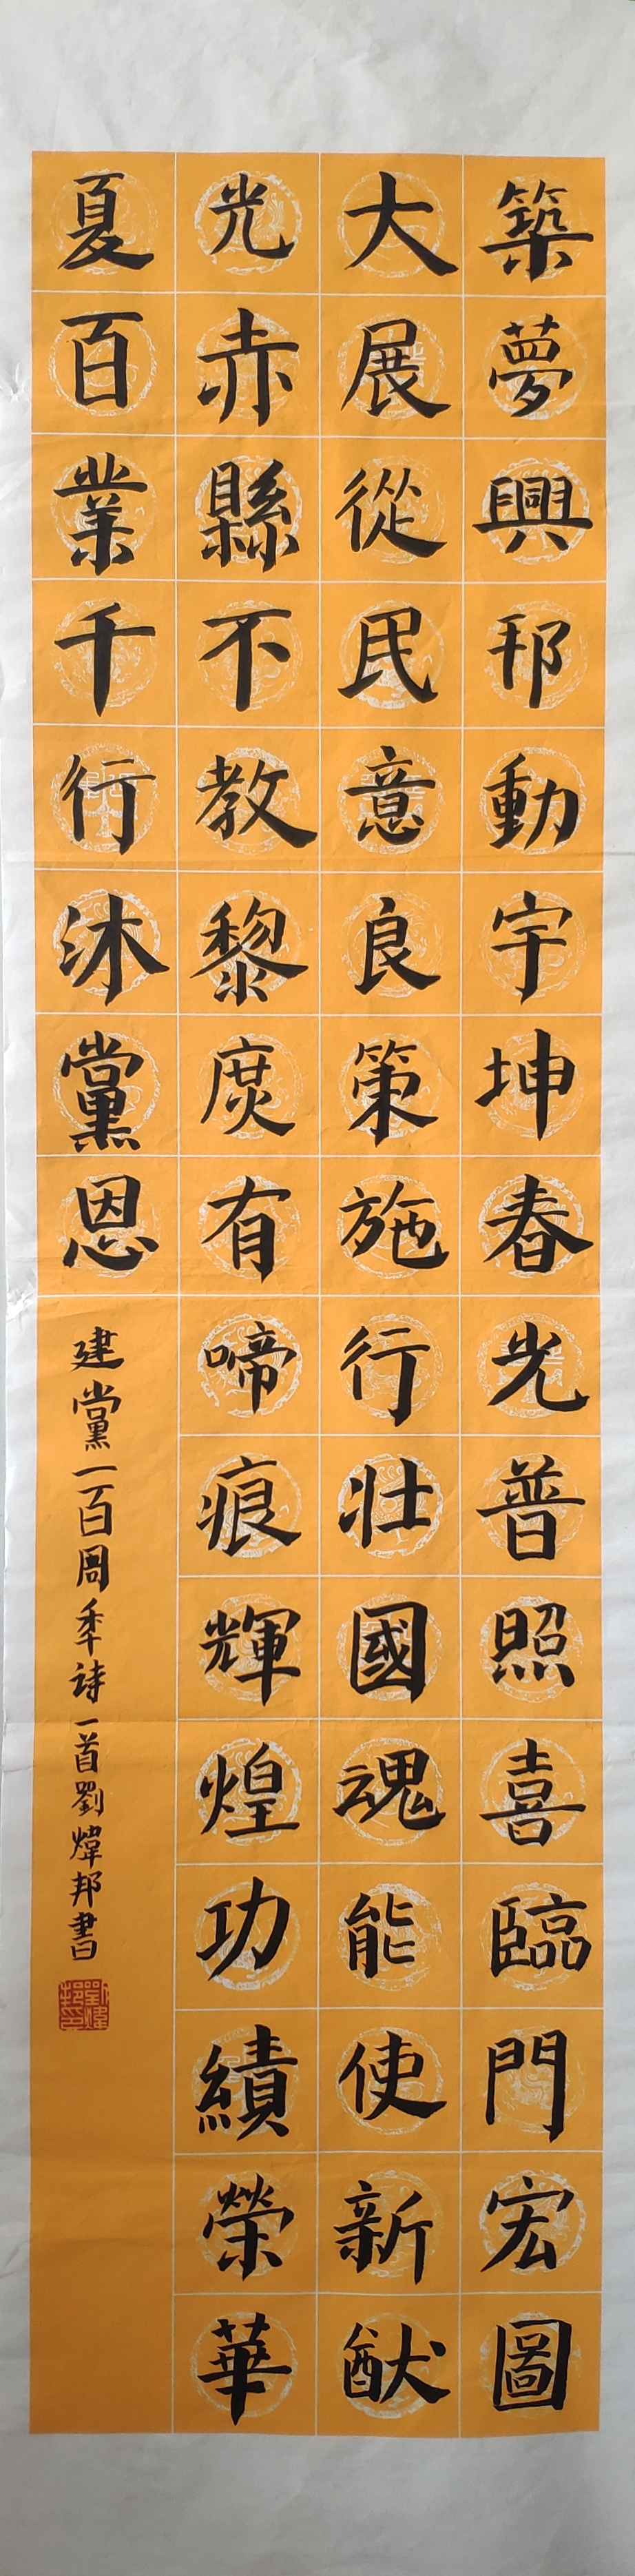 築夢興邦動宇坤春光普照喜臨門宏圖
大展從民意良策施行壯國魂能使新猷
光赤縣不教黎庶有啼痕輝煌功績榮華
夏百業千行沐黨恩
建黨一百周年詩一首劉煒邦書